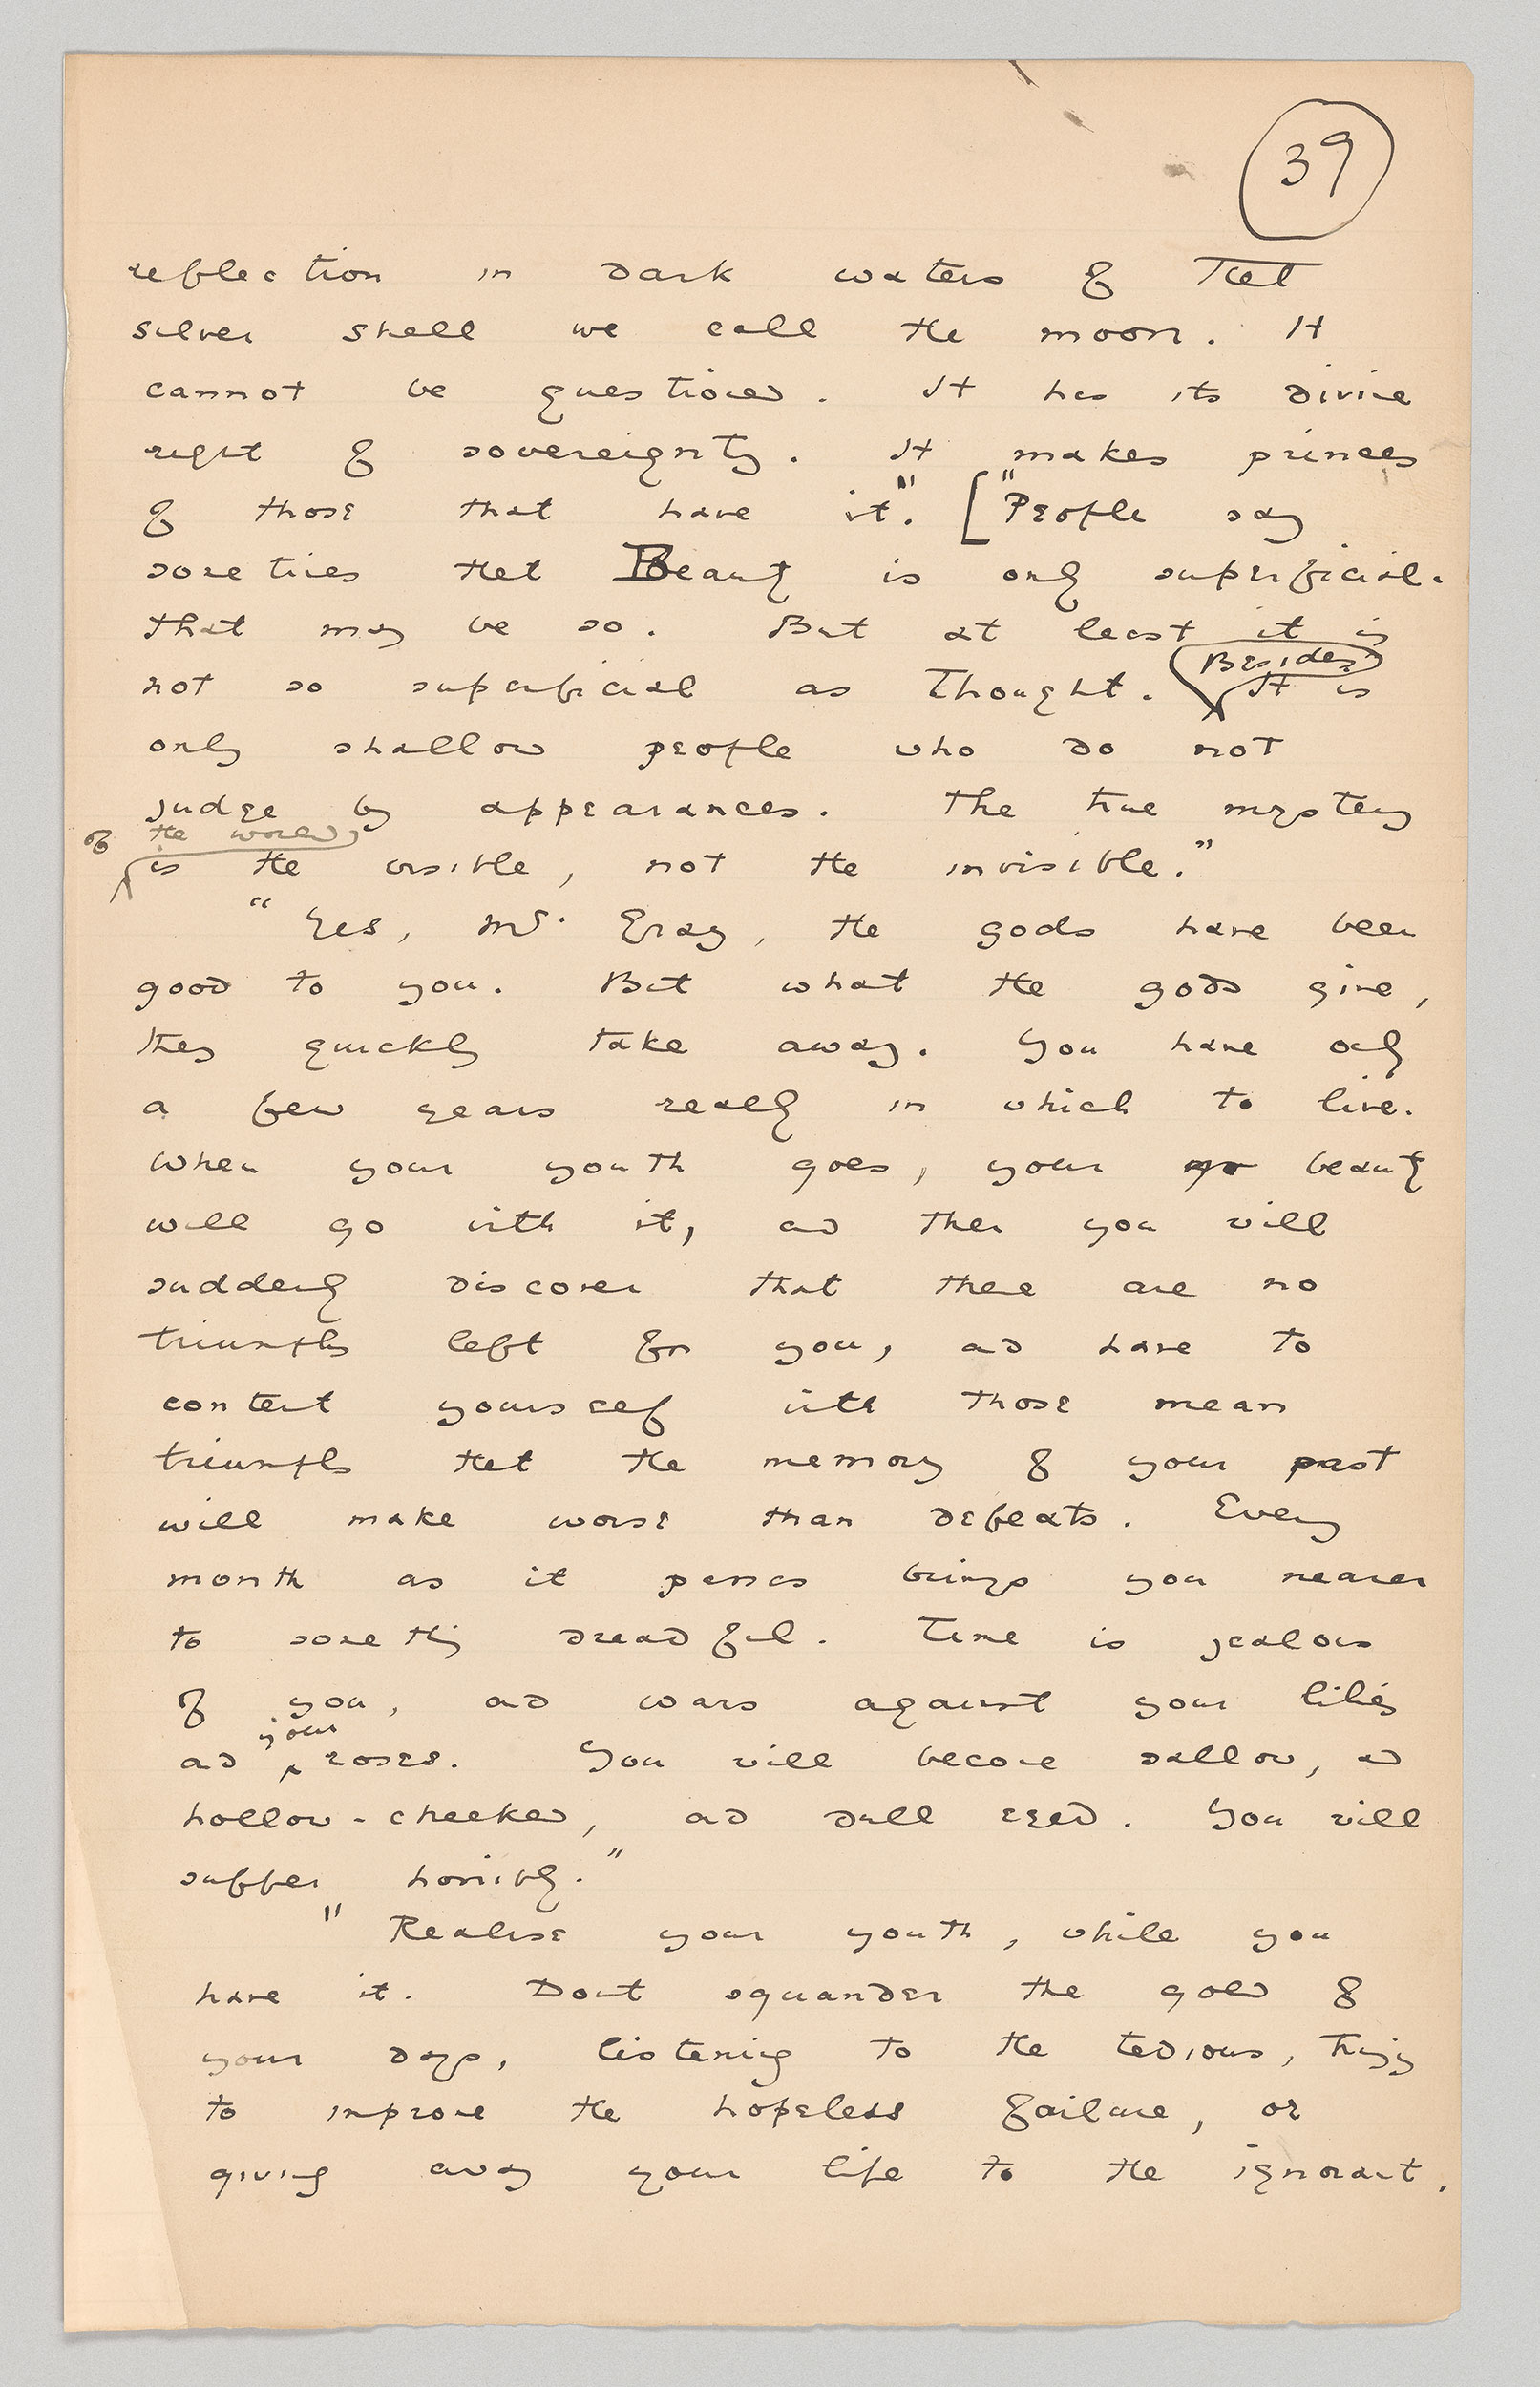 39
reflection in dark waters of that
silver shell we call the moon. It
cannot be questioned. It has its divine
right of sovereignty. It makes princes
of those that have it." ["People say
sometimes that Beauty is only superficial.
That may be so. But at least it is
not so superficial as Thought. Besides It is
only shallow people who do not
judge by appearances. The true mystery
of the world
is the visible, not the invisible."
"Yes, Mr. Gray, the gods have been
good to you. But what the gods give,
they quickly take away. You have only
a few years really in which to live.
When your youth goes, your beauty
will go with it, and then you will
suddenly discover that there are no
triumphs left for you, and have to
content yourself with those mean
triumphs that the memory of your past
will make worse than defeats. Every
month as it passes brings you nearer
to something dreadful. Time is jealous
of you, and wars against your lilies
and your roses. You will become sallow, and
hollow-cheeked, and dull eyed. You will
suffer horribly."
"Realise your youth, while you
have it. Dont squander the gold of
your days, listening to the tedious, trying
to improve the hopeless failure, or
giving away your life to the ignorant,